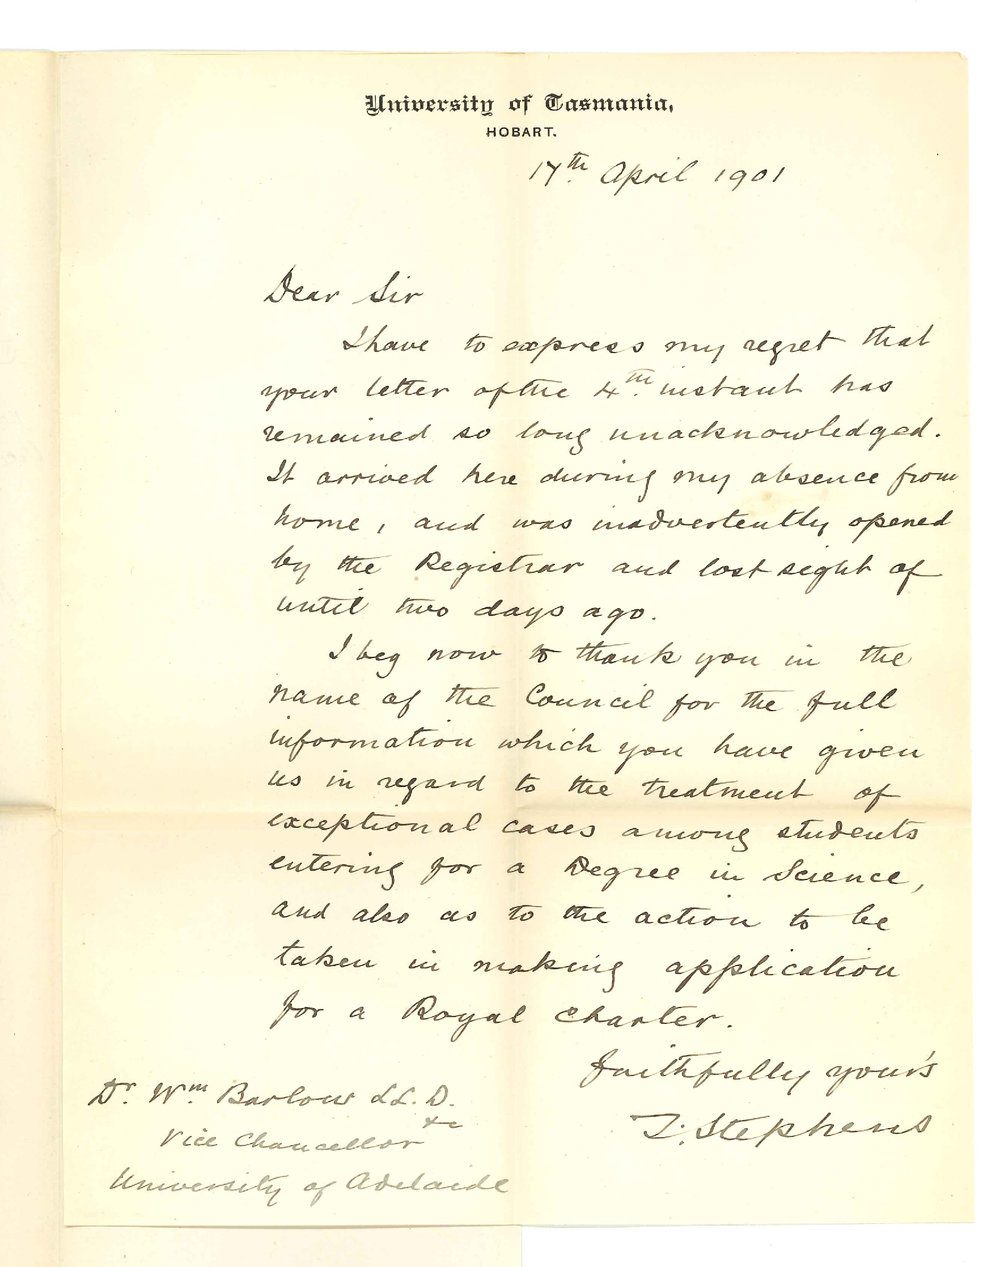 University of Tasmania,
HOBART.
17th. April 1901
Dear Sir
I have to express my regret that
your letter of the 4th. instant has
remained so long unacknowledged.
It arrived here during my absence from
home, and was inadvertently opened
by the Registrar and lost sight of
until two days ago.
I beg now to thank you in the
name of the Council for the full
information which you have given
us in regard to the treatment of
exceptional cases among students
entering for a Degree in Science,
and also as to the action to be
taken in making application
for a Royal Charter.
faithfully your's
T. Stephens
Dr. Wm. Barlow LL.D.
Vice Chancellor &c
University of Adelaide